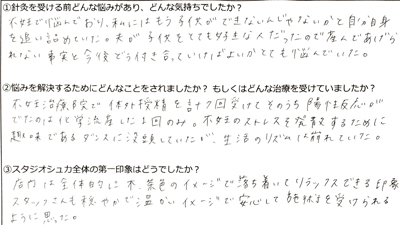 ①針灸を受ける前どんな悩みがあり、どんな気持ちでしたか？
不妊で悩んでおり、私にはもう子供ができないんじゃないかと自分自身
を追い詰めていた。夫が子供をとても好きな人だったので産んであげら
れない事実と今後どう付き合っていけばよいかとても悩んでいた。
②悩みを解決するためにどんなことをされましたか？ もしくはどんな治療を受けていましたか？
不妊治療院で体外受精を計7回受けてそのうち陽性反応が
でたのは化学流産した1回のみ。不妊のストレスを発散するために
趣味であるダンスに没頭していたが、生活のリズムは崩れていた。
③スタジオシュカ全体の第一印象はどうでしたか？
店内は全体的に木、茶色のイメージで落ち着いてリラックスできる印象
スタッフさんも穏やかで温かいイメージで安心して施術を受けられる
ように思った。